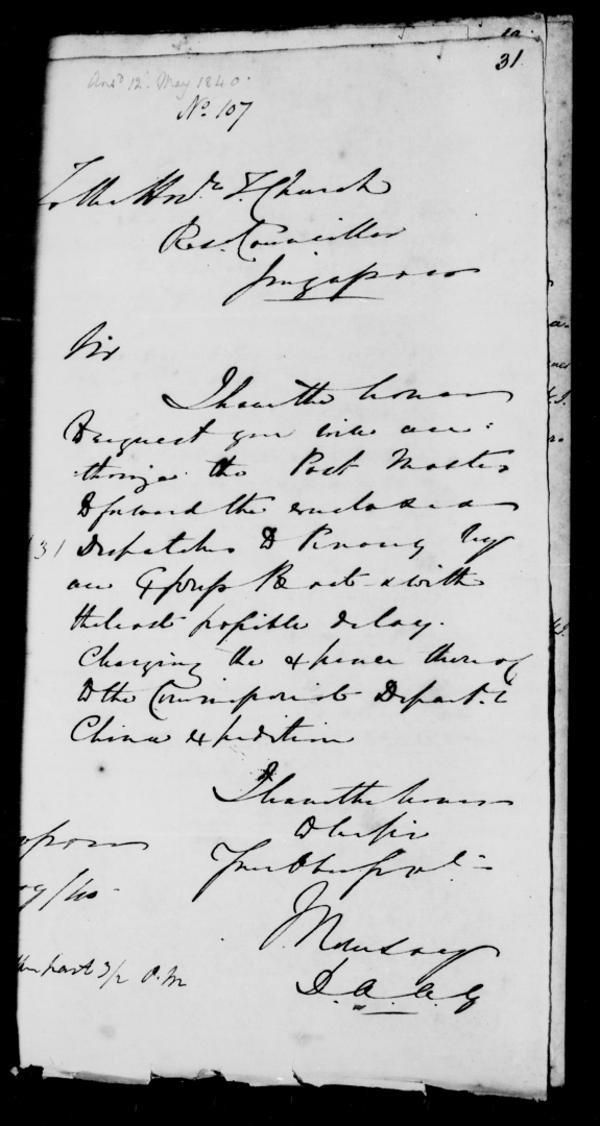 31
Ansd. 12 May 1840.
No. 107
To the Honble T. Church
Res. Councillor
Singapore
Sir
I have the honor
to request you will au:
thorize the Post Master
to forward the enclosed
31 Dispatches to Penang by
an Express Boat with
the least possible delay.
Charging the expence thereof
to the Commissariat Depart.t
China expedition
I have the honor
to be Sir
Your Obed Serv.t
D.A.A.G
past 3/2 P.M